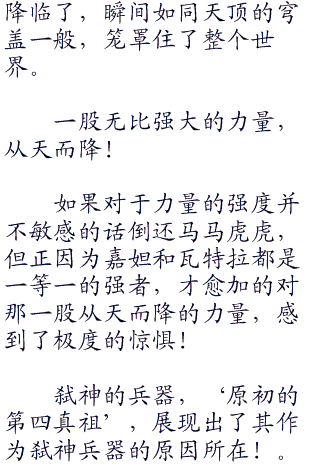 降临了，瞬间如同天顶的穹
盖一般，笼罩住了整个世
界。
一股无比强大的力量，
从天而降！
如果对于力量的强度并
不敏感的话倒还马马虎虎，
但正因为嘉妲和瓦特拉都是
一等一的强者，才愈加的对
那一股从天而降的力量，感
到了极度的惊惧！
弑神的兵器，‘原初的
第四真祖’，展现出了其作
为弑神兵器的原因所在！。